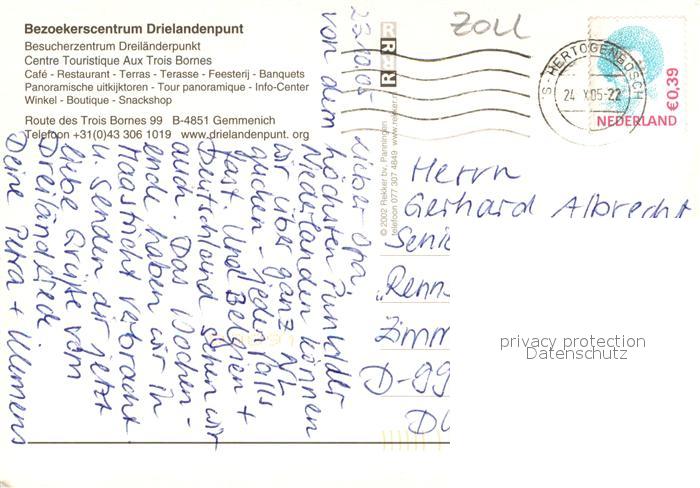 Bezoekerscentrum Drielandenpunt
Besucherzentrum Dreiländerpunkt
Centre Touristique Aux Trois Bornes
Café - Restaurant - Terras - Terasse - Feesterij - Banquets
Panoramische uitkijktoren - Tour panoramique - Info-Center
Winkel - Boutique - Snackshop
Route des Trois Bornes 99 B-4851 Gemmenich
Telefoon +31(0)43 306 1019 www.drielandenpunt.org
ZOLL
'S-HERTOGENBOSCH
24 X.05-22
€0,39
NEDERLAND
REKR
© 2002 Rekker bv, Panningen
telefoon 077 307 4849 www.rekker.
22.10.05
Lieber Opa,
von dem höchsten Punkt der
Niederlanden können
wir über ganz NL
gucken - jedenfalls
fast. Und Belgien +
Deutschland sehen wir
auch. Das Wochen-
ende haben wir in
Maastricht verbracht
u. senden dir jetzt
liebe Grüße vom
Dreiländereck
Deine Petra + Klemens
Herrn
Gerhard Albrecht
Senio
"Renn
Zimm
D-99
DU
privacy protection
Datenschutz